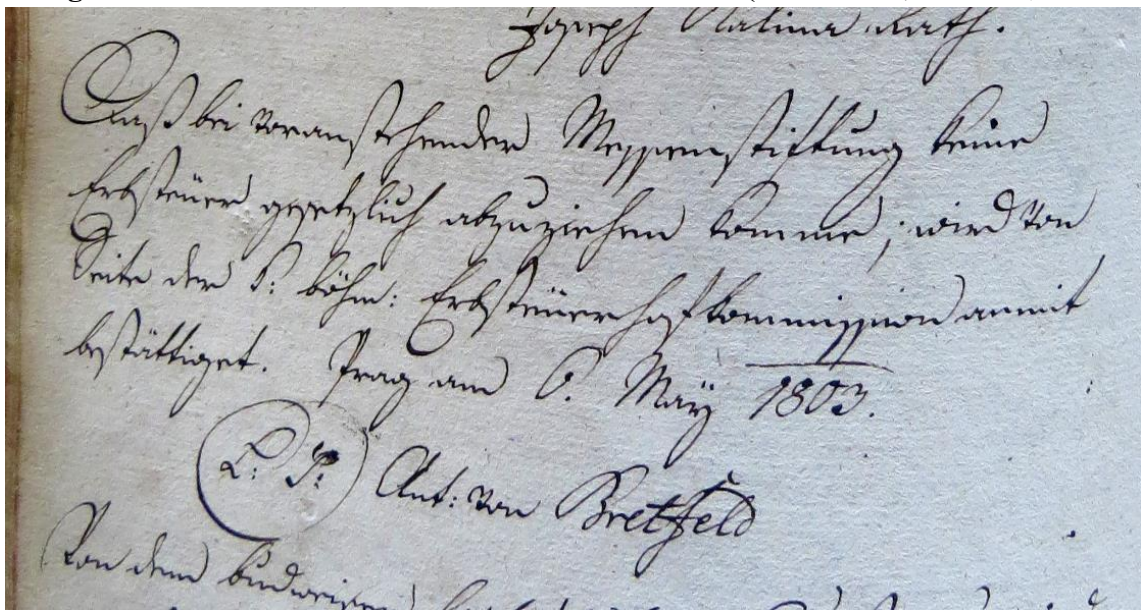 Joseph Kalina Rath.
Daß bei voranstehender Messenstiftung keine
Erbsteüer gesetzlich abzuziehen komme; wird von
Seite der k: böhm: Erbsteüerhofkommission anmit
bestättiget. Prag am 6. Maÿ 1803.
L: S: Ant: von Bretfeld
Von dem budweiser